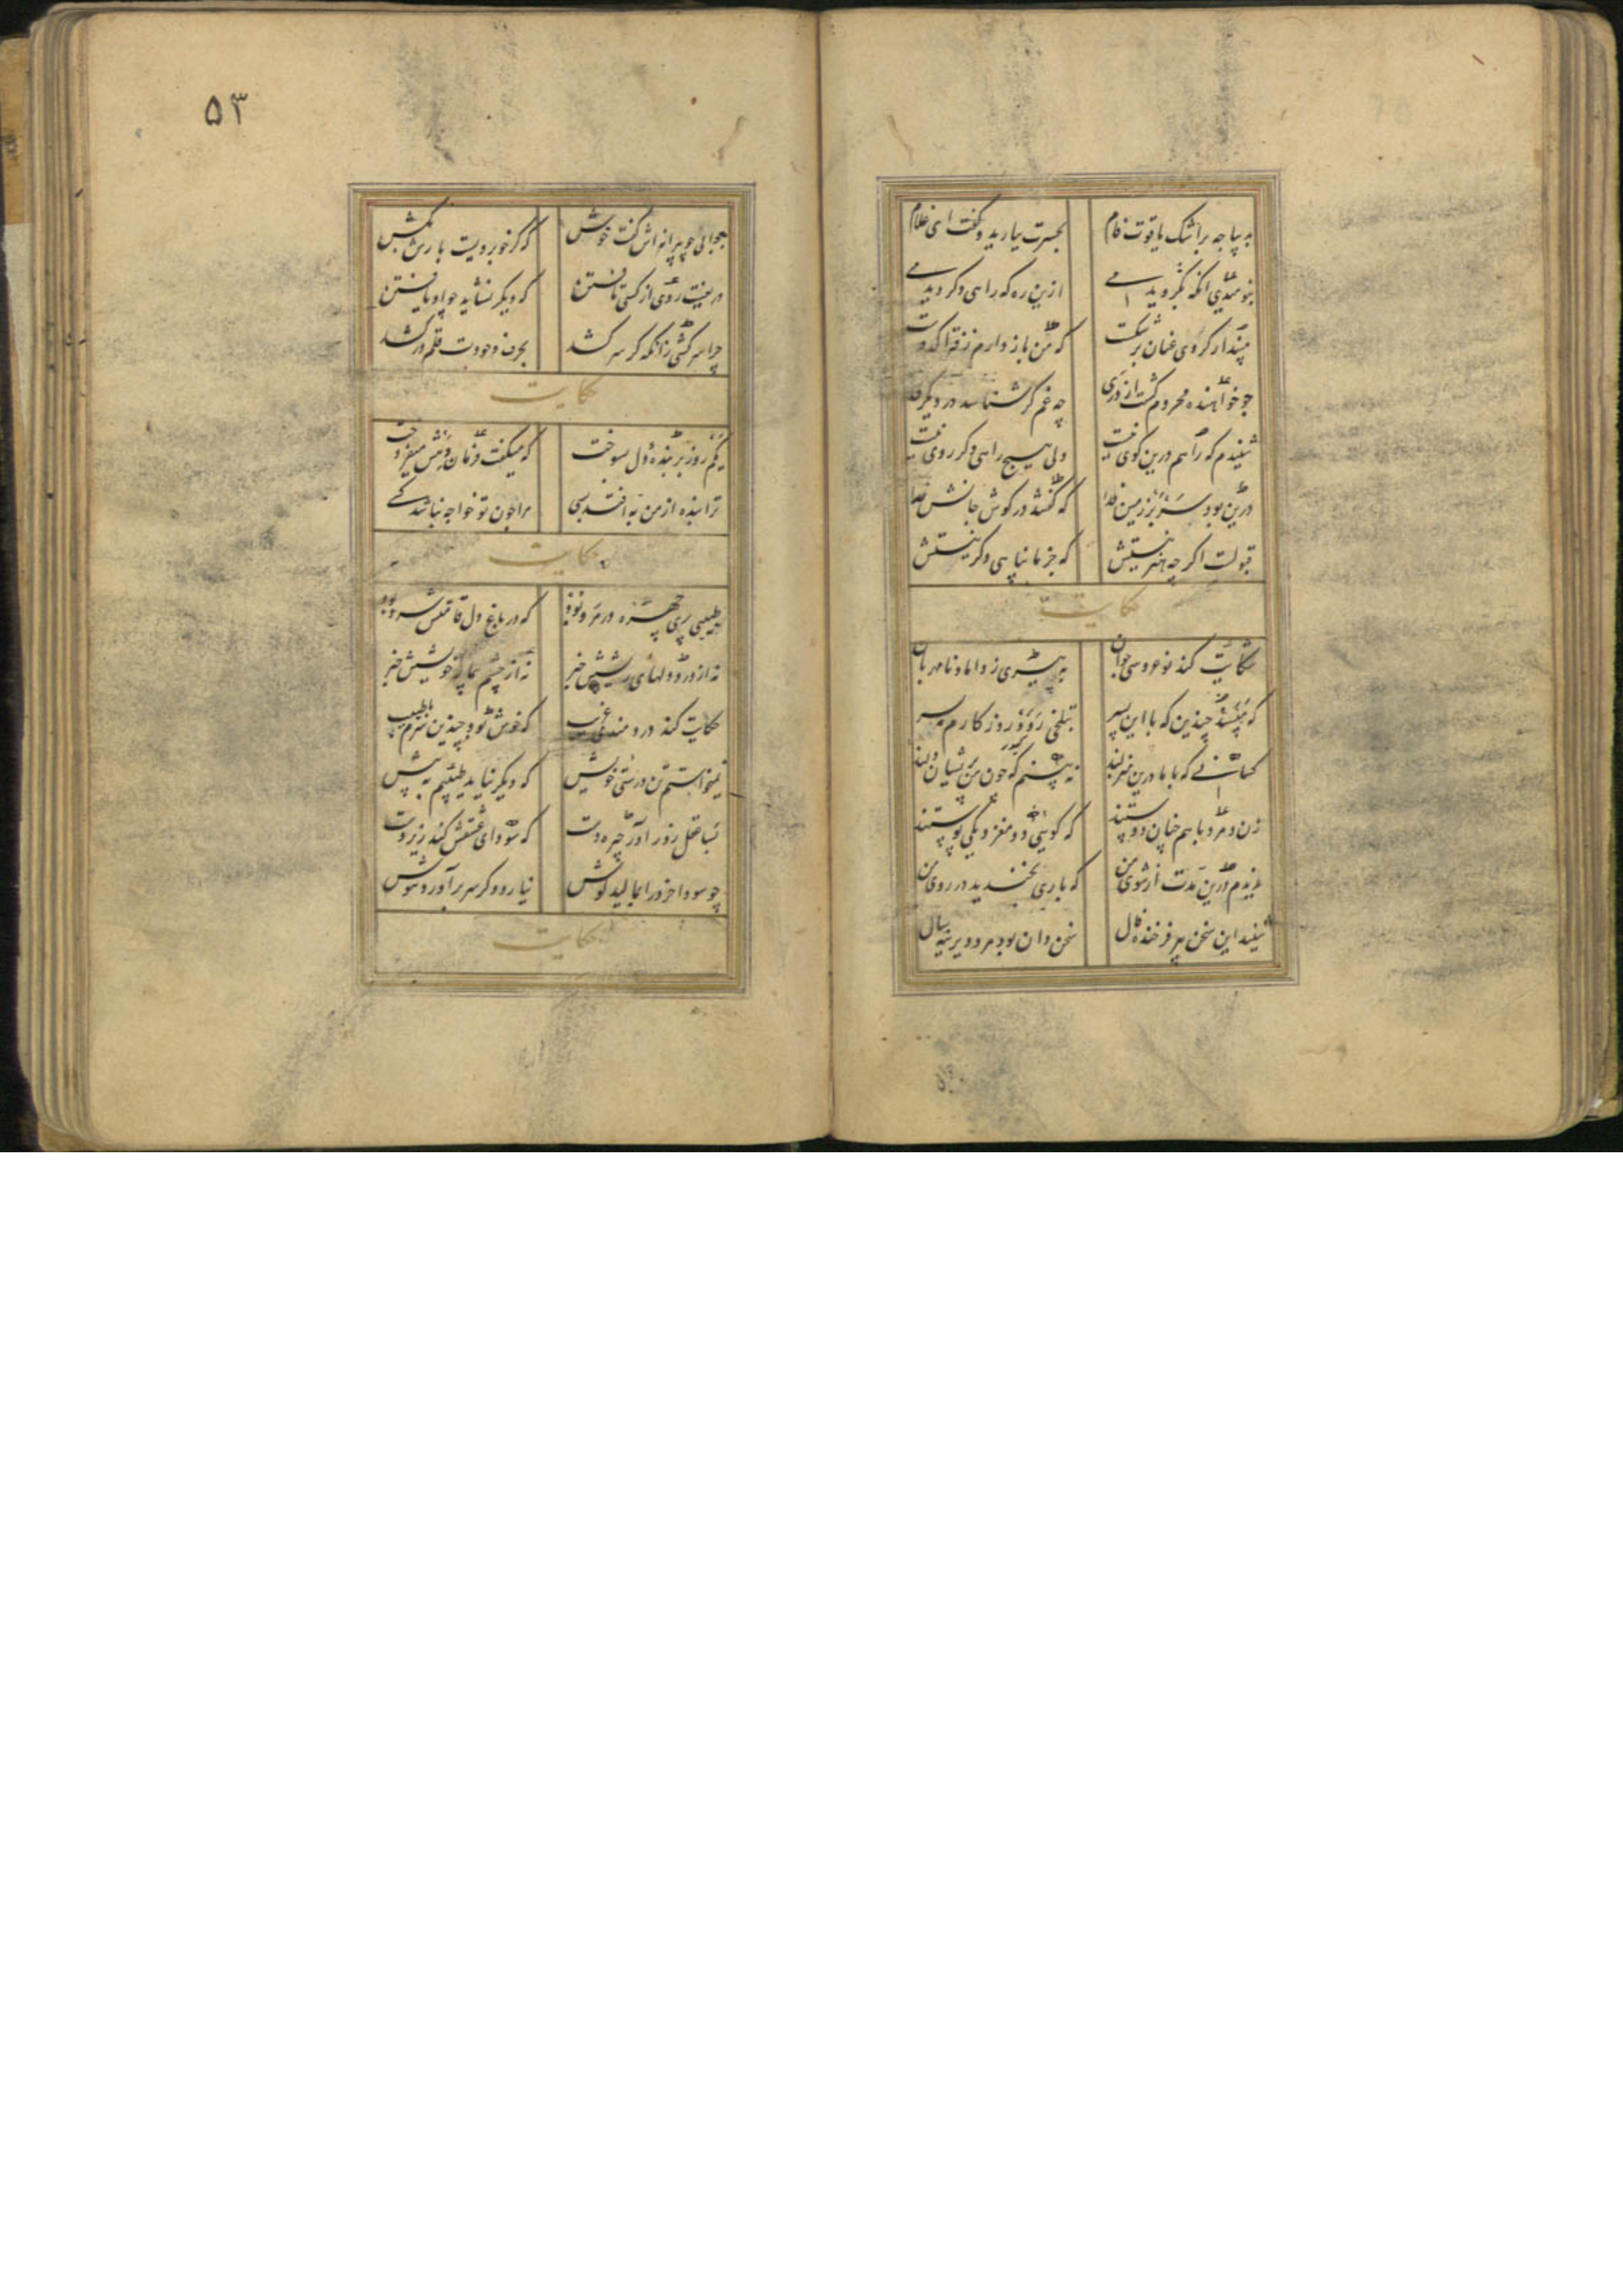 به پیاچه بر اشک یاقوت فام بحسرت ببارید و گفت ای غلام
بنومیدی آنگه بگردیدمی ازین ره که راهی دگر دیدمی
مپندار گر وی عنان برشکست که من باز دارم ز فتراک دست
چو خواهنده محروم گشت از دری چه غم گر شناسد در دیگری
شنیدم که راهم درین کوی نیست ولی هیچ راهی دگر روی نیست
درین بود سر بر زمین فدا که گفتند در گوش جانش ندا
قبولست اگرچه هنر نیستش که جز ما پناهی دگر نیستش
حکایت
شکایت کند نوعروسی جوان به پیری ز داماد نامهربان
که مپسند چندین که با این پسر بتلخی رود روزگارم بسر
کسانی که با ما درین منزلند نه بینم که چون من پریشان دلند
زن و مرد با هم چنان دوستند که گویی دو مغز و یکی پوستند
ندیدم درین مدت از شوی من که باری بخندید در روی من
شنید این سخن پیر فرخنده فال سخن دان بود مرد دیرینه سال
۵۳
جوابی چو پیرانه اش گفت خوش که گر خوبرویست بارش بکش
دریغست روی از کسی تافتن که دیگر نشاید چو او یافتن
چرا سرکشی زانکه گر سر کشد بحرف وجودت قلم در کشد
حکایت
یکم روز بر بنده دل بسوخت که میگفت و فرماندهش میفروخت
ترا بنده از من به افتد بسی مرا چون تو خواجه نباشد کسی
حکایت
طبیبی پری چهره در مرو بود که در باغ دل قامتش سرو بود
نه از درد دلهای ریشش خبر نه از چشم بیمار خویشش خبر
حکایت کند دردمندی غریب که خوش بود چندین سرم با طبیب
نمیخواستم تن درستی خویش که دیگر نیاید طبیبم به پیش
بسا عقل زورآور چیره دست که سودای عشقش کند زیردست
چو سودا خرد را بمالید گوش نیارد دگر سر برآورد هوش
حکایت